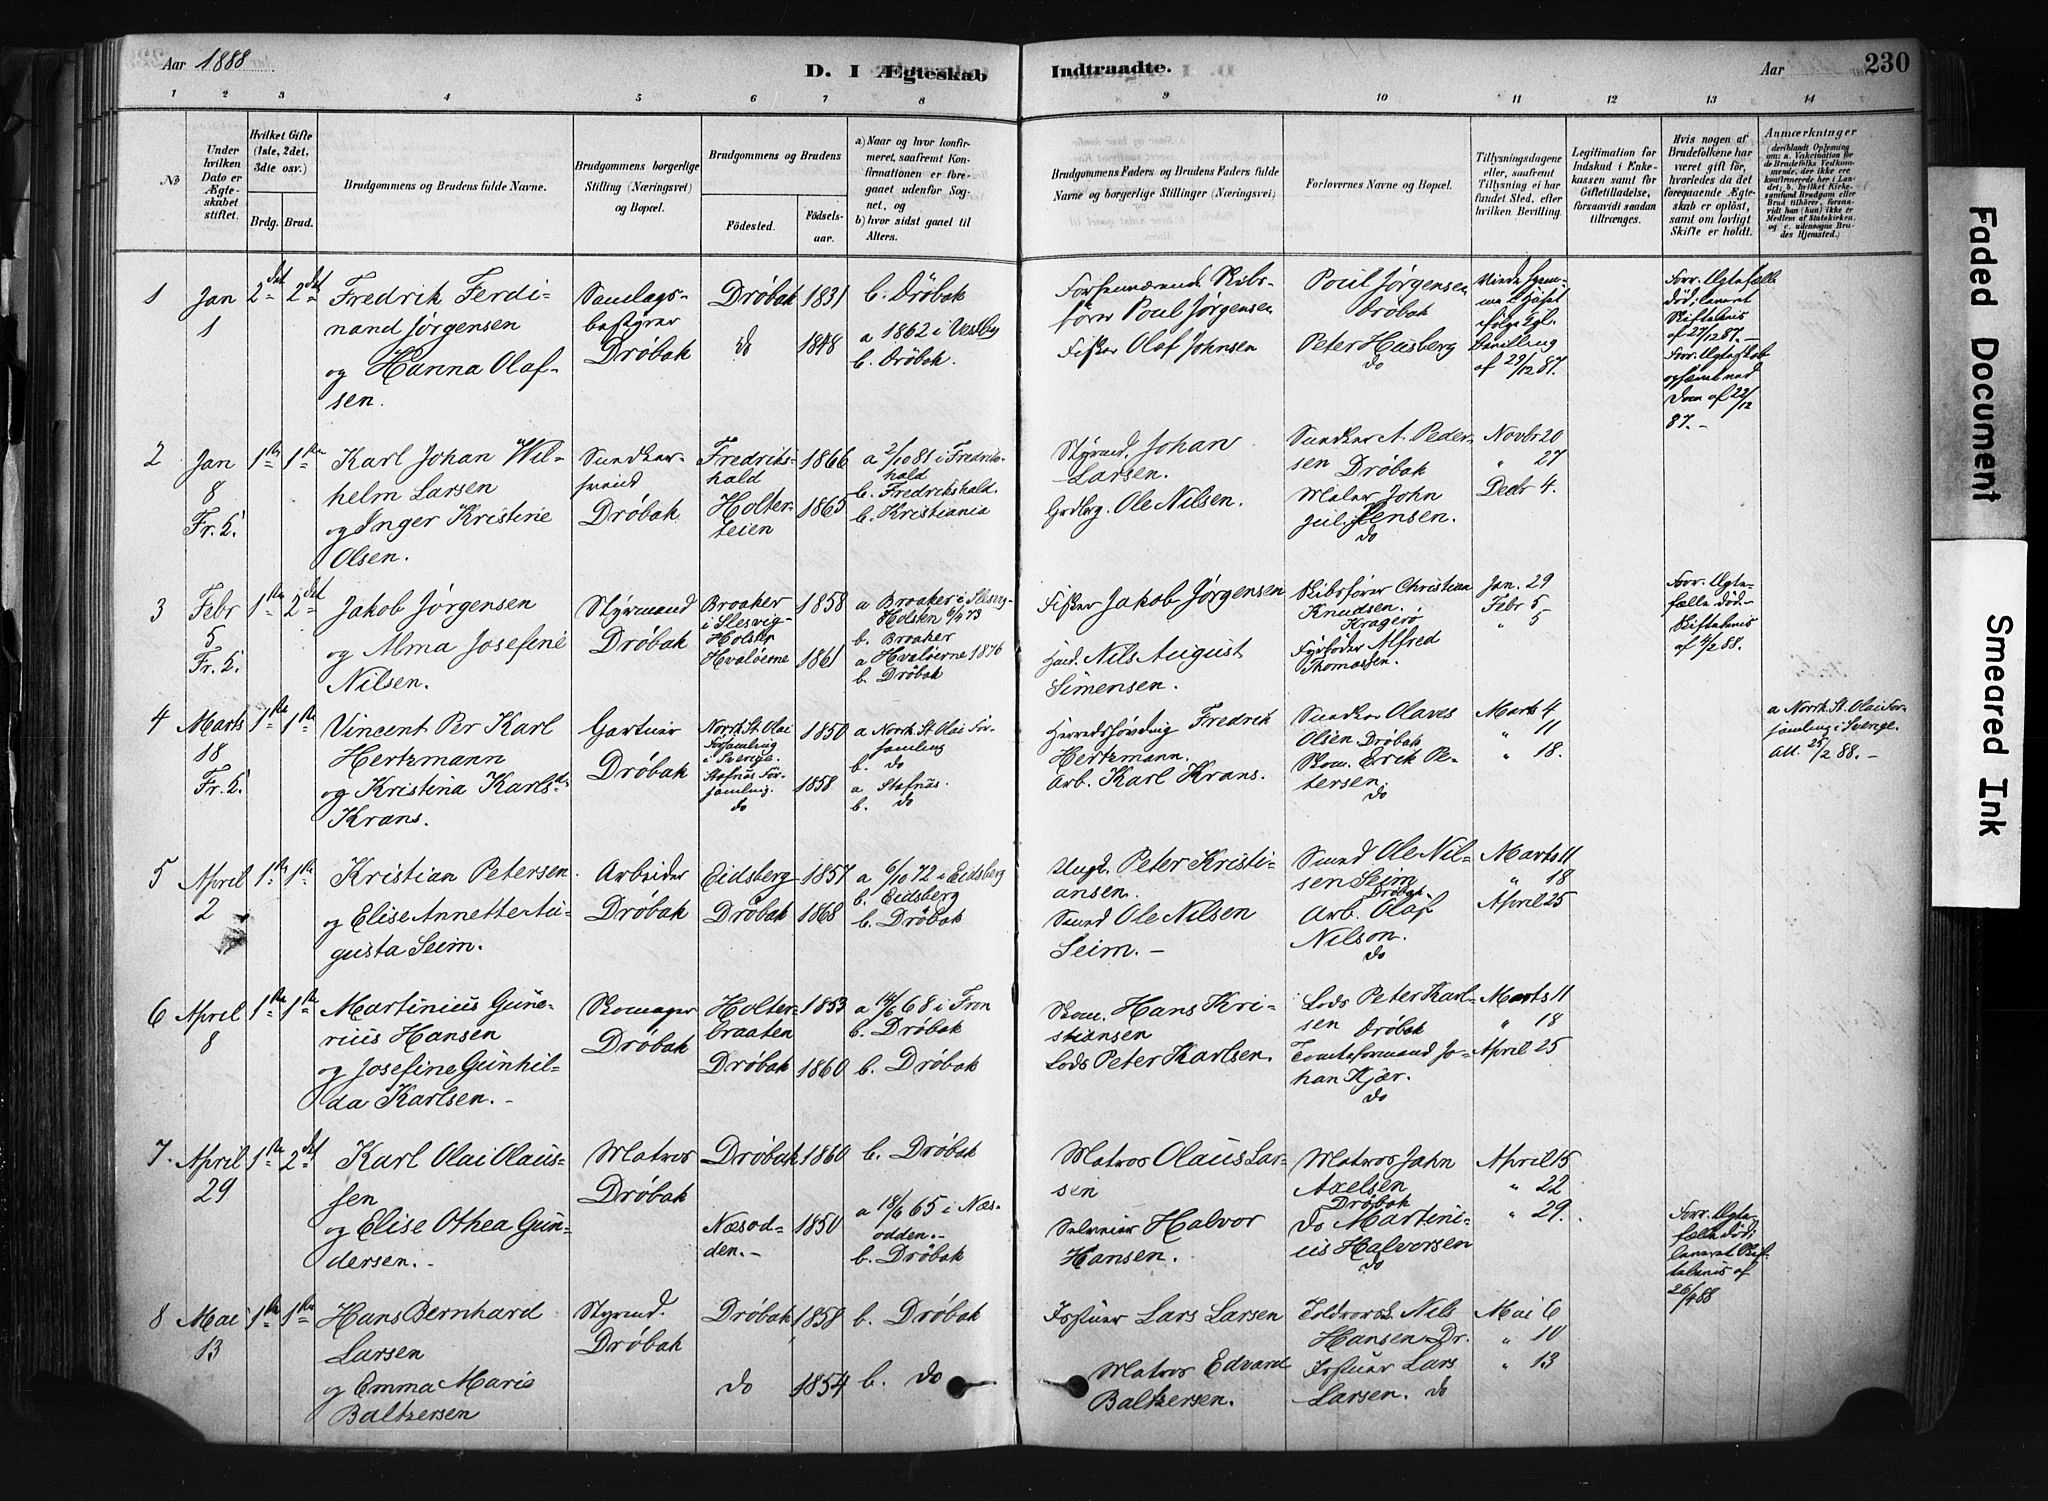 Aar 1888
D. I Ægteskab Indtraadte.
Aar 230
1 2 3 4 5 6 7 8 9 10 11 12 13 14
No
Under hvilken Dato er Ægteskabet stiftet.
Hvilket Gifte (1ste, 2det, 3die osv.)
Brdg. Brud.
Brudgommens og Brudens fulde Navne.
Brudgommens borgerlige Stilling (Næringsvei) og Bopæl.
Brudgommens og Brudens
Fødested. Fødselsaar.
a) Naar og hvor konfirmeret, saafremt Konfirmationen er foregaaet udenfor Sognet, og b) hvor sidst gaaet til Alters.
Brudgommens Faders og Brudens Faders fulde Navne og borgerlige Stillinger (Næringsvei)
Forlovernes Navne og Bopæl.
Tillysningsdagene eller, saafremt Tillysning ei har fundet Sted, efter hvilken Bevilling.
Legitimation for Indskud i Enkekassen samt for Giftetilladelse, forsaavidt saadan tiltrænges.
Hvis nogen af Brudefolkene har været gift før, hvorledes da det foregaaende Ægteskab er opløst, samt om lovligt Skifte er holdt.
Anmærkninger (deriblandt Oplysning om: a. Vakcination for de Brudefolks Vedkommende, der ikke ere konfirmerede her i Landet; b. hvilket Kirkesamfund Brudgom eller Brud tilhører, forsaavidt han (hun) ikke er Medlem af Statskirken, og c. udensogns Brudes Hjemsted.)
1 Jan 1 2det 2det
Fredrik Ferdi-
nand Jørgensen
og Hanna Olaf-
sen.
Samlags-
bestyrer
Drøbak
Drøbak 1831
do 1848
b. Drøbak
a 1862 i Vestby
b. Drøbak.
Poul Jørgensen
Fisker Olaf Johnsen
Poul Jørgensen
Drøbak
Peter Husberg
do
Bevilling
af 29/12 87.
Forr. Ægtefælle
død; lavret
Skiftebevis
af 27/12 87.—
Forr. Ægteskab
ophævet ved
Dom af 22/12
87.—
2 Jan 8 Fr. K. 1ste 1ste
Karl Johan Wil-
helm Larsen
og Inger Kristine
Olsen.
Snedker-
svend
Drøbak
Fredriks-
hald 1866
Holter-
teien 1865
a 2/10 81 i Fredriks-
hald
b. Fredrikshald.
b. Kristiania
Styrmd. Johan
Larsen.
Grdbrg. Ole Nilsen.
Snedker A. Peder-
sen Drøbak
Maler John
Jul. Jensen.
do
Novbr 20
" 27
Decbr 4.
3 Febr 5 Fr. K. 1ste 2det
Jakob Jørgensen
og Alma Josefine
Nilsen.
Styrmand
Drøbak
Broaker
i Slesvig-
Holsten 1858
Hvaløerne 1861
a Broaker i Slesvig-
Holsten 6/4 73
b. Broaker
a Hvaløerne 1876
b. Drøbak
Fisker Jakob Jørgensen
Nils August
Simensen.
Skibsfører Christian
Knudsen.
Kragerø
Fyrbøder Alfred
Thomassen.
Jan. 29
Febr 5
" 5
Forr. Ægte-
fælle død.—
Skiftebevis
af 4/2 88.
4 Marts 18 Fr. K. 1ste 1ste
Vincent Per Karl
Hertzmann
og Kristina Karlsdr
Krans.
Gartner
Drøbak
Norrk. St. Olai
Församling
i Sverige. 1850
Stafnäs För-
samling. 1858
do
a Norrk. St Olai För-
samling
b. do
a Stafnäs.
b. do
Herredshövding Fredrik
Hertzmann.
Arb. Karl Krans.
Snedker Olaves
Olsen. Drøbak
Skom. Erik Pe-
tersen.
do
Marts 4
" 11
" 18.
a Norrk. St. Olai För-
samling i Sverige.
Att. 25/2 88.—
5 April 2 1ste 1ste
Kristian Petersen
og Elise Annette Au-
gusta Seim.
Arbeider
Drøbak
Eidsberg 1857
Drøbak 1868
a 6/10 72 i Eidsberg
b. Eidsberg
b. Drøbak
Ungk. Peter Kristi-
ansen.
Smed Ole Nilsen
Seim.—
Smed Ole Nil-
sen Seim
Drøbak.
Arb. Olaf
Nilson.
do
Marts 11
" 18
April 25
6 April 8 1ste 1ste
Martinius Gune-
rius Hansen
og Josefine Gunhil-
da Karlsen.—
Skomager
Drøbak
Holter-
braaten 1853
Drøbak 1860
a 14/6 68 i Fron
b. Drøbak
b. Drøbak
Skom. Hans Kri-
stiansen
Lods Peter Karlsen.
Lods Peter Karl-
sen Drøbak
Tomteformand Jo-
han Kjær.
do
Marts 11
" 18
April 25
7. April 29 1ste 2det
Karl Olai Olaus-
sen
og Elise Othea Gun-
dersen.—
Matros
Drøbak
Drøbak 1860
Næsod-
den.— 1850
b. Drøbak
a 18/6 65 i Næs-
odden.—
b. Drøbak
Matros Olaus Lar-
sen
Selveier Halvor
Hansen.
Matros Jahn
Axelsen
Drøbak
do Martini-
us Halvorsen
do
April 15
" 22
" 29.
Forr. Ægte-
fælle død;
leveret Skif-
tebevis af
26/4 88
8 Mai 13 1ste 1ste
Hans Bernhard
Larsen
og Emma Marie
Baltzersen
Styrmd.
Drøbak
Drøbak 1858
do 1854
b. Drøbak
b. do
Lars Larsen
Matros Edvard
Baltzersen.
Nils
Hansen Dr.
Lars
Larsen. do
Mai 6
" 10
" 13
Faded Document
Smeared Ink